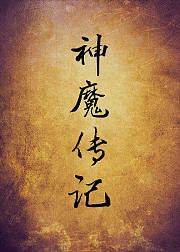 神魔传记